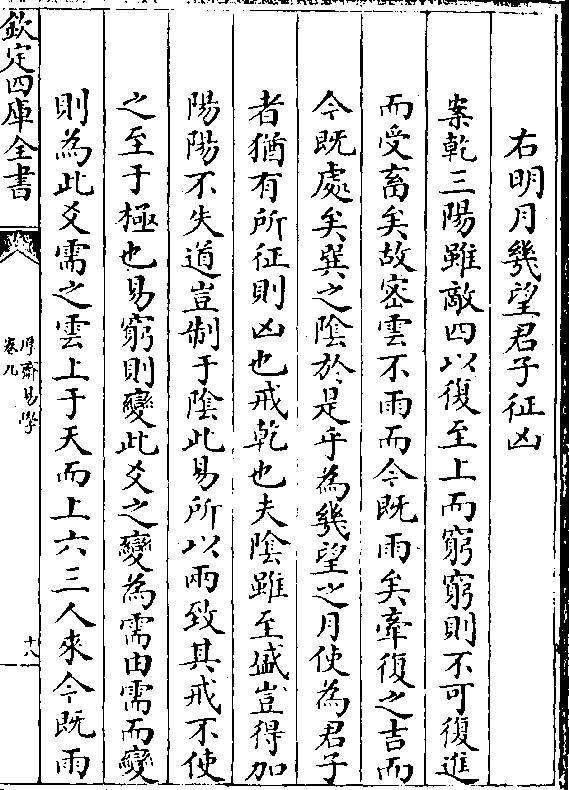 右明月幾望君子征凶
案乾三陽雖敵四以復至上而窮窮則不可復進
而受畜矣故宻雲不雨而今既雨矣牽復之吉而
今既處矣巽之陰於是乎為幾望之月使為君子
者猶有所征則凶也戒乾也夫陰雖至盛豈得加
陽陽不失道豈制于陰此易所以兩致其戒不使
之至于極也易窮則變此爻之變為需由需而變
則為此爻需之雲上于天而上六三人來今既雨
欽定四庫全書
厚齋易學
卷九
十八